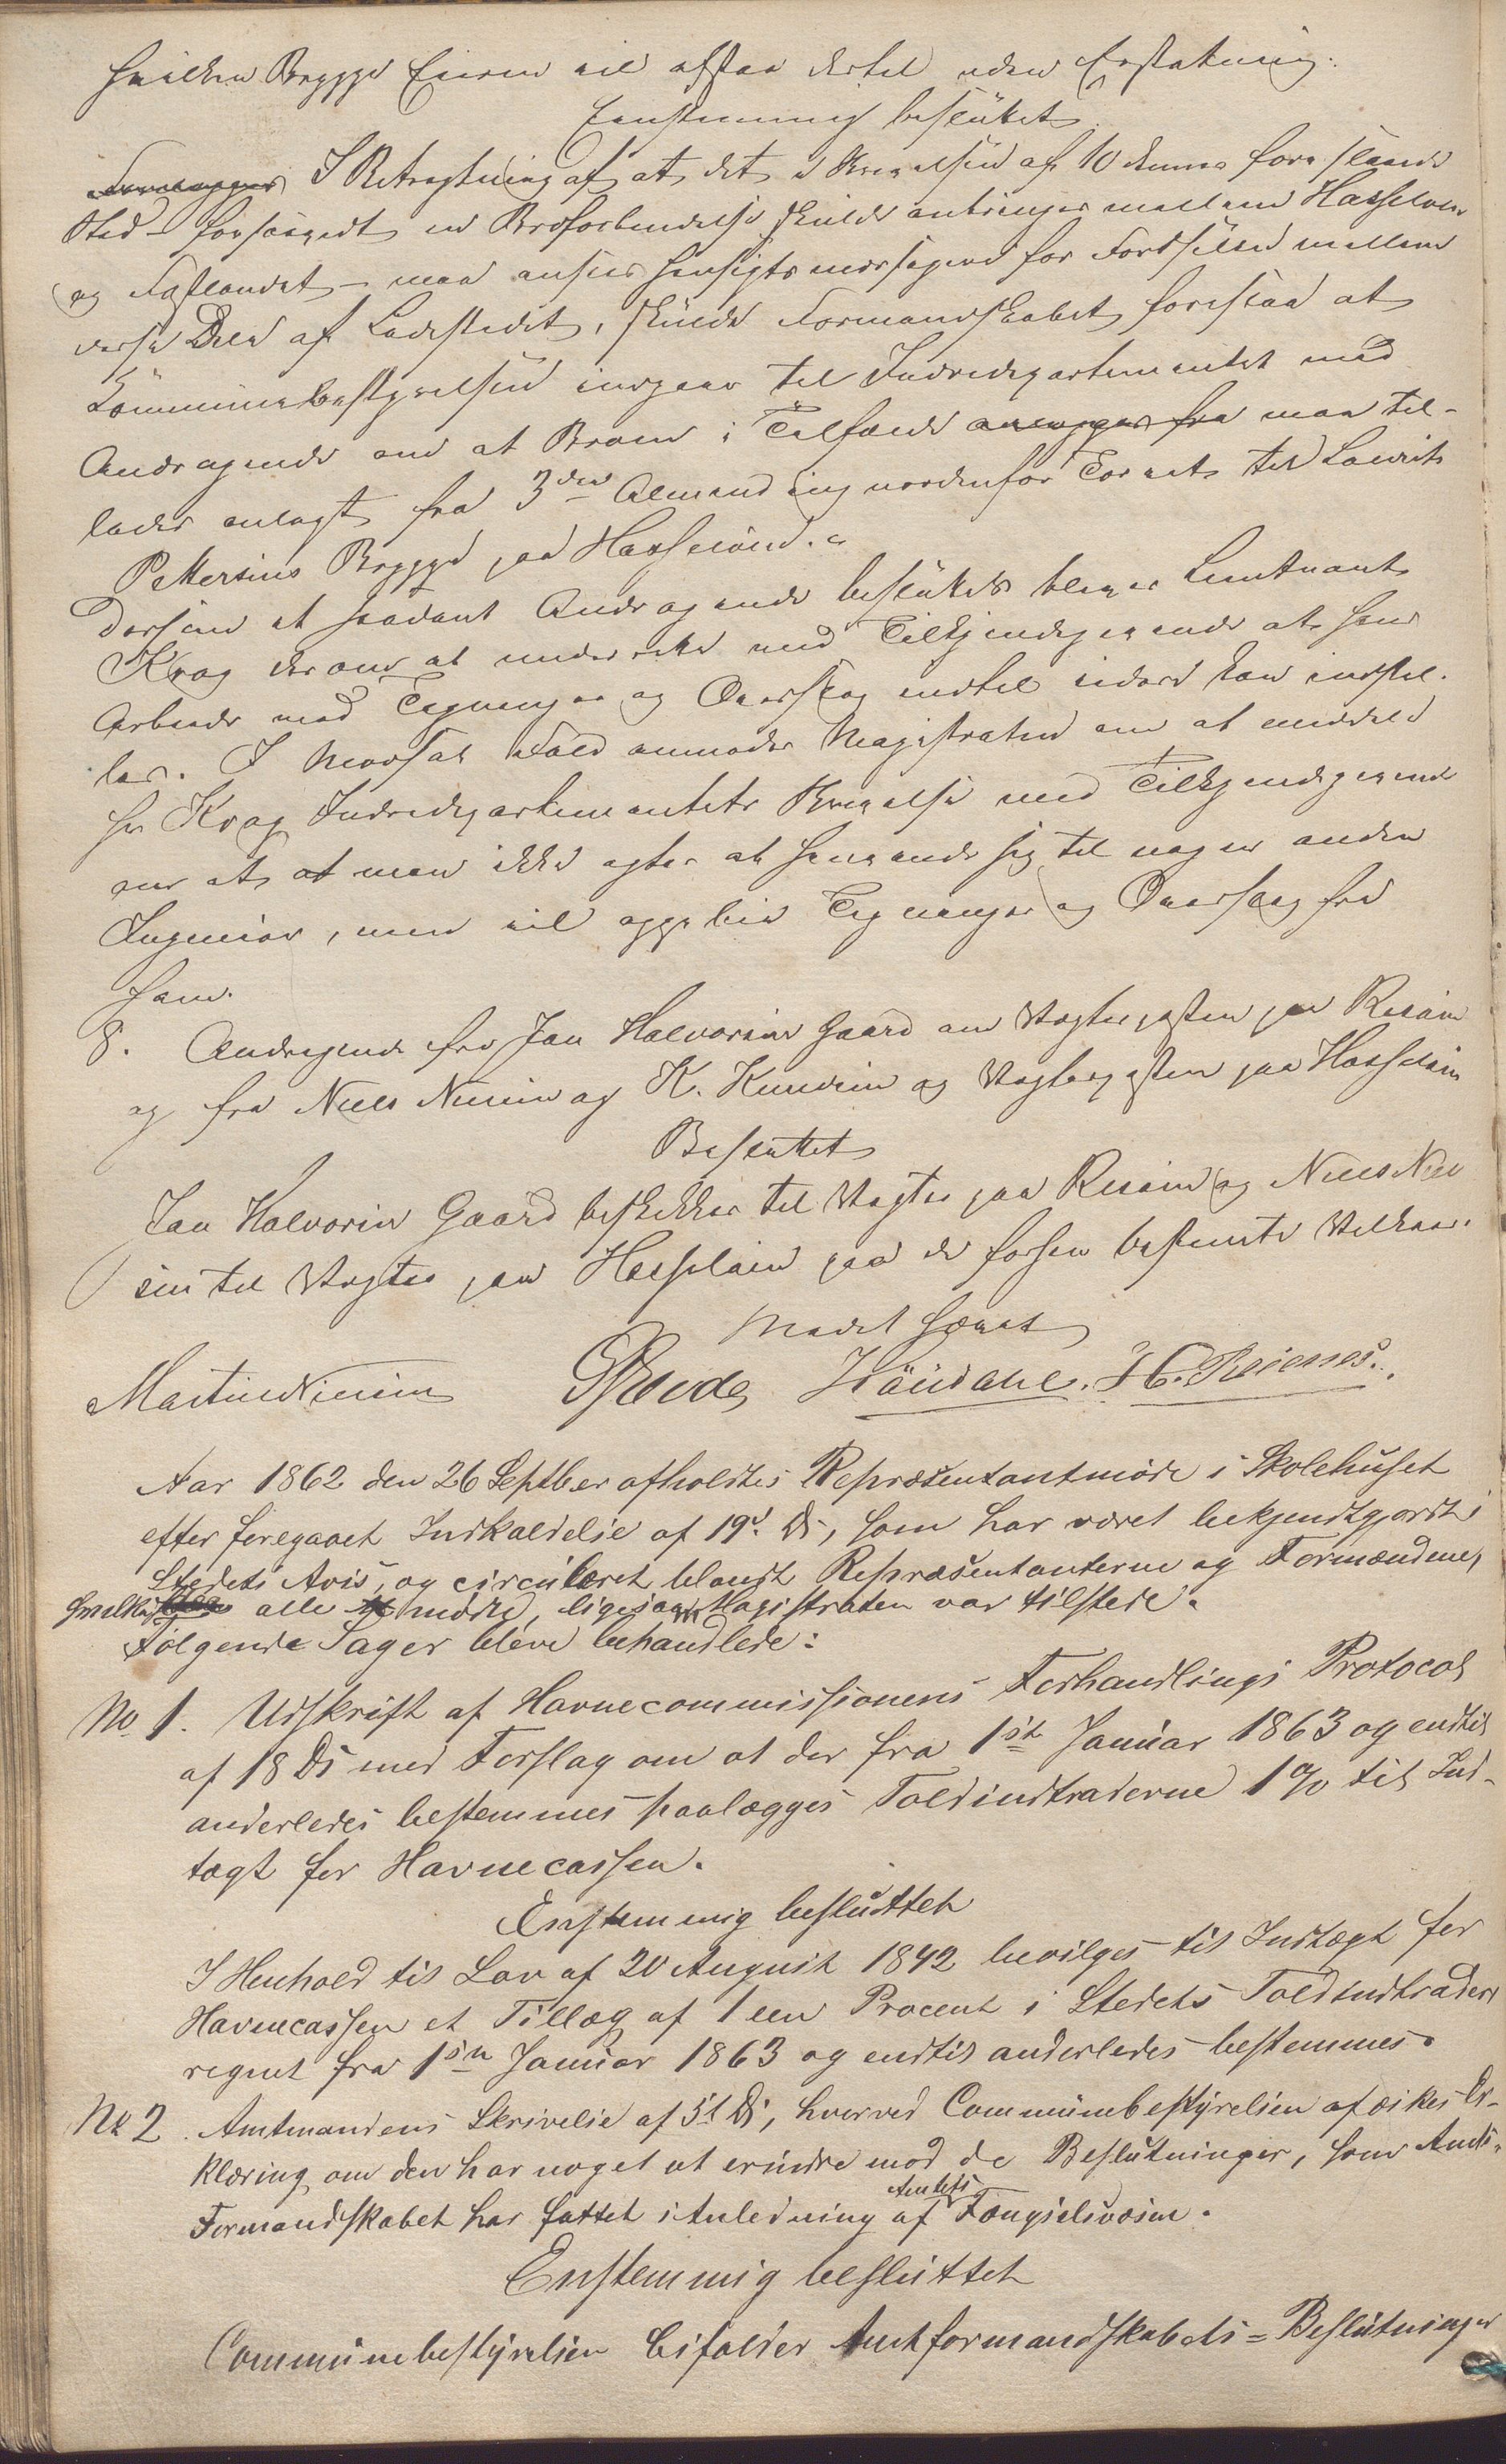 hvilken Brygge Eieren vil afstaa dertil uden Erstatning.
Eenstemmig besluttet
I Betragtning af at det i Skrivelsen af 10 dennes foreslaaede
Sted – forsaavidt en Broforbindelse skulde anbringes mellem Hasseløen
og Fastlandet – maa ansees hensigtsmæssigere for Færdselen mellem
disse Dele af Ladestedet, skulde Formandskabet foreslaa at
Kommunebestyrelsen indgaar til Indredepartementet med
Andragende om at Broen i Tilfælde maa til-
lades anlagt fra 3die Almending nordenfor Torvet til Laurits
Pettersens Brygge paa Hasseløen.
Dersom et saadant Andragende besluttes bliver Lieutenant
Krag derom at underrette med Tilkjendegivende at hans
Arbeide med Tegninger og Overslag indtil videre kan indstil-
les. I modsat Fald anmodes Magistraten om at meddele
Hr Krag Indredepartementets Skrivelse med Tilkjendegivende
om at at man ikke agter at henvende sig til nogen anden
Ingeniør, men vil oppebie Tegninger og Overslag fra
ham.
8. Andragende fra Jan Halvorsen Gaard om Vægterposten paa Risøen
og fra Niels Nielsen og K. Knudsen og Vægterposten paa Hasseløen
Besluttet
Jan Halvorsen Gaard beskikkes til Vægter paa Risøen og Niels Niel
sen til Vægter paa Hasseløen paa de forhen bestemte Vilkaar.
Mødet hævet
Martin Nielsen H. Reienes.
Aar 1862 den 26 Septber afholdtes Repræsentantmøde i Skolehuset
efter foregaaet Indkaldelse af 19d. Ds, som har været bekjendtgjordt i
Stedets Avis, og circuleret blandt Repræsentanterne og Formændene,
hvilke alle mødte, ligesom Magistraten var tilstede.
Følgende Sager bleve behandlede:
No 1. Udskrift af Havnecommissionens Forhandlings Protocol
af 18 Ds med Forslag om at der fra 1ste Januar 1863 og indtil
anderledes bestemmes paalægges Toldindtraderne 1 % til Ind-
tægt for Havnecassen.
Enstemmig besluttet
I Henhold til Lov af 20 August 1842 bevilges til Indtægt for
Havnecassen et Tillæg af 1 een Procent i Stedets Toldindtrader
regnet fra 1ste Januar 1863 og indtil anderledes bestemmes.
No 2. Amtmandens Skrivelse af 5t Ds, hvorved Communebestyrelsen afæskes Er-
klæring om den har noget at erindre mod de Beslutninger, som Amts-
Formandskabet har fattet i Anledning af Amtets Fængselsvæsen.
Enstemmig besluttet
Communebestyrelsen bifalder Amtformandskabets Beslutninger